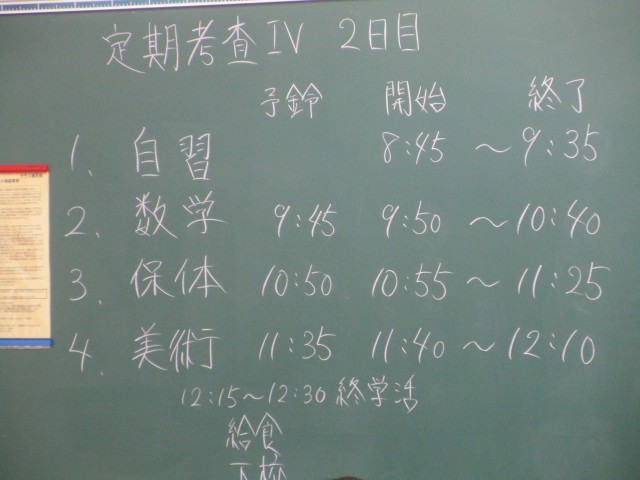 定期考査IV 2日目
予鈴 開始 終了
1. 自習 8:45 ~ 9:35
2. 数学 9:45 9:50 ~ 10:40
3. 保体 10:50 10:55 ~ 11:25
4. 美術 11:35 11:40 ~ 12:10
12:15~12:30 終学活
給食